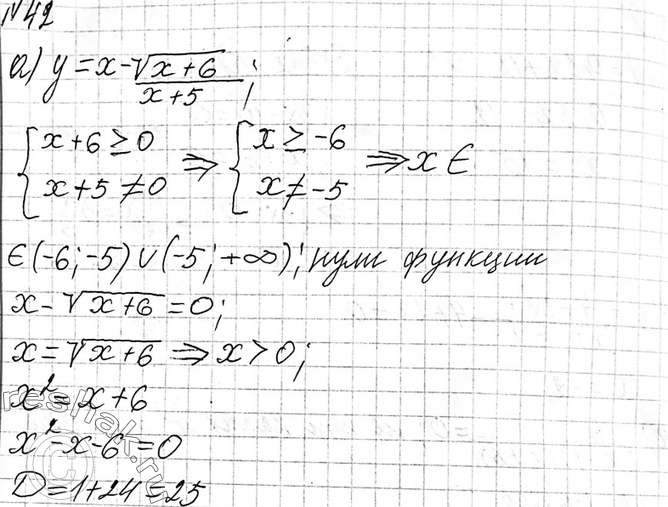 №42
а) y = x - √(x+6) / (x+5);
{ x+6 ≥ 0 ⇒ { x ≥ -6 ⇒ x ∈
{ x+5 ≠ 0 { x ≠ -5
∈ (-6; -5) ∪ (-5; +∞); нули функции
x - √(x+6) = 0;
x = √(x+6) ⇒ x > 0;
x² = x + 6
x² - x - 6 = 0
D = 1 + 24 = 25
reshak.ru